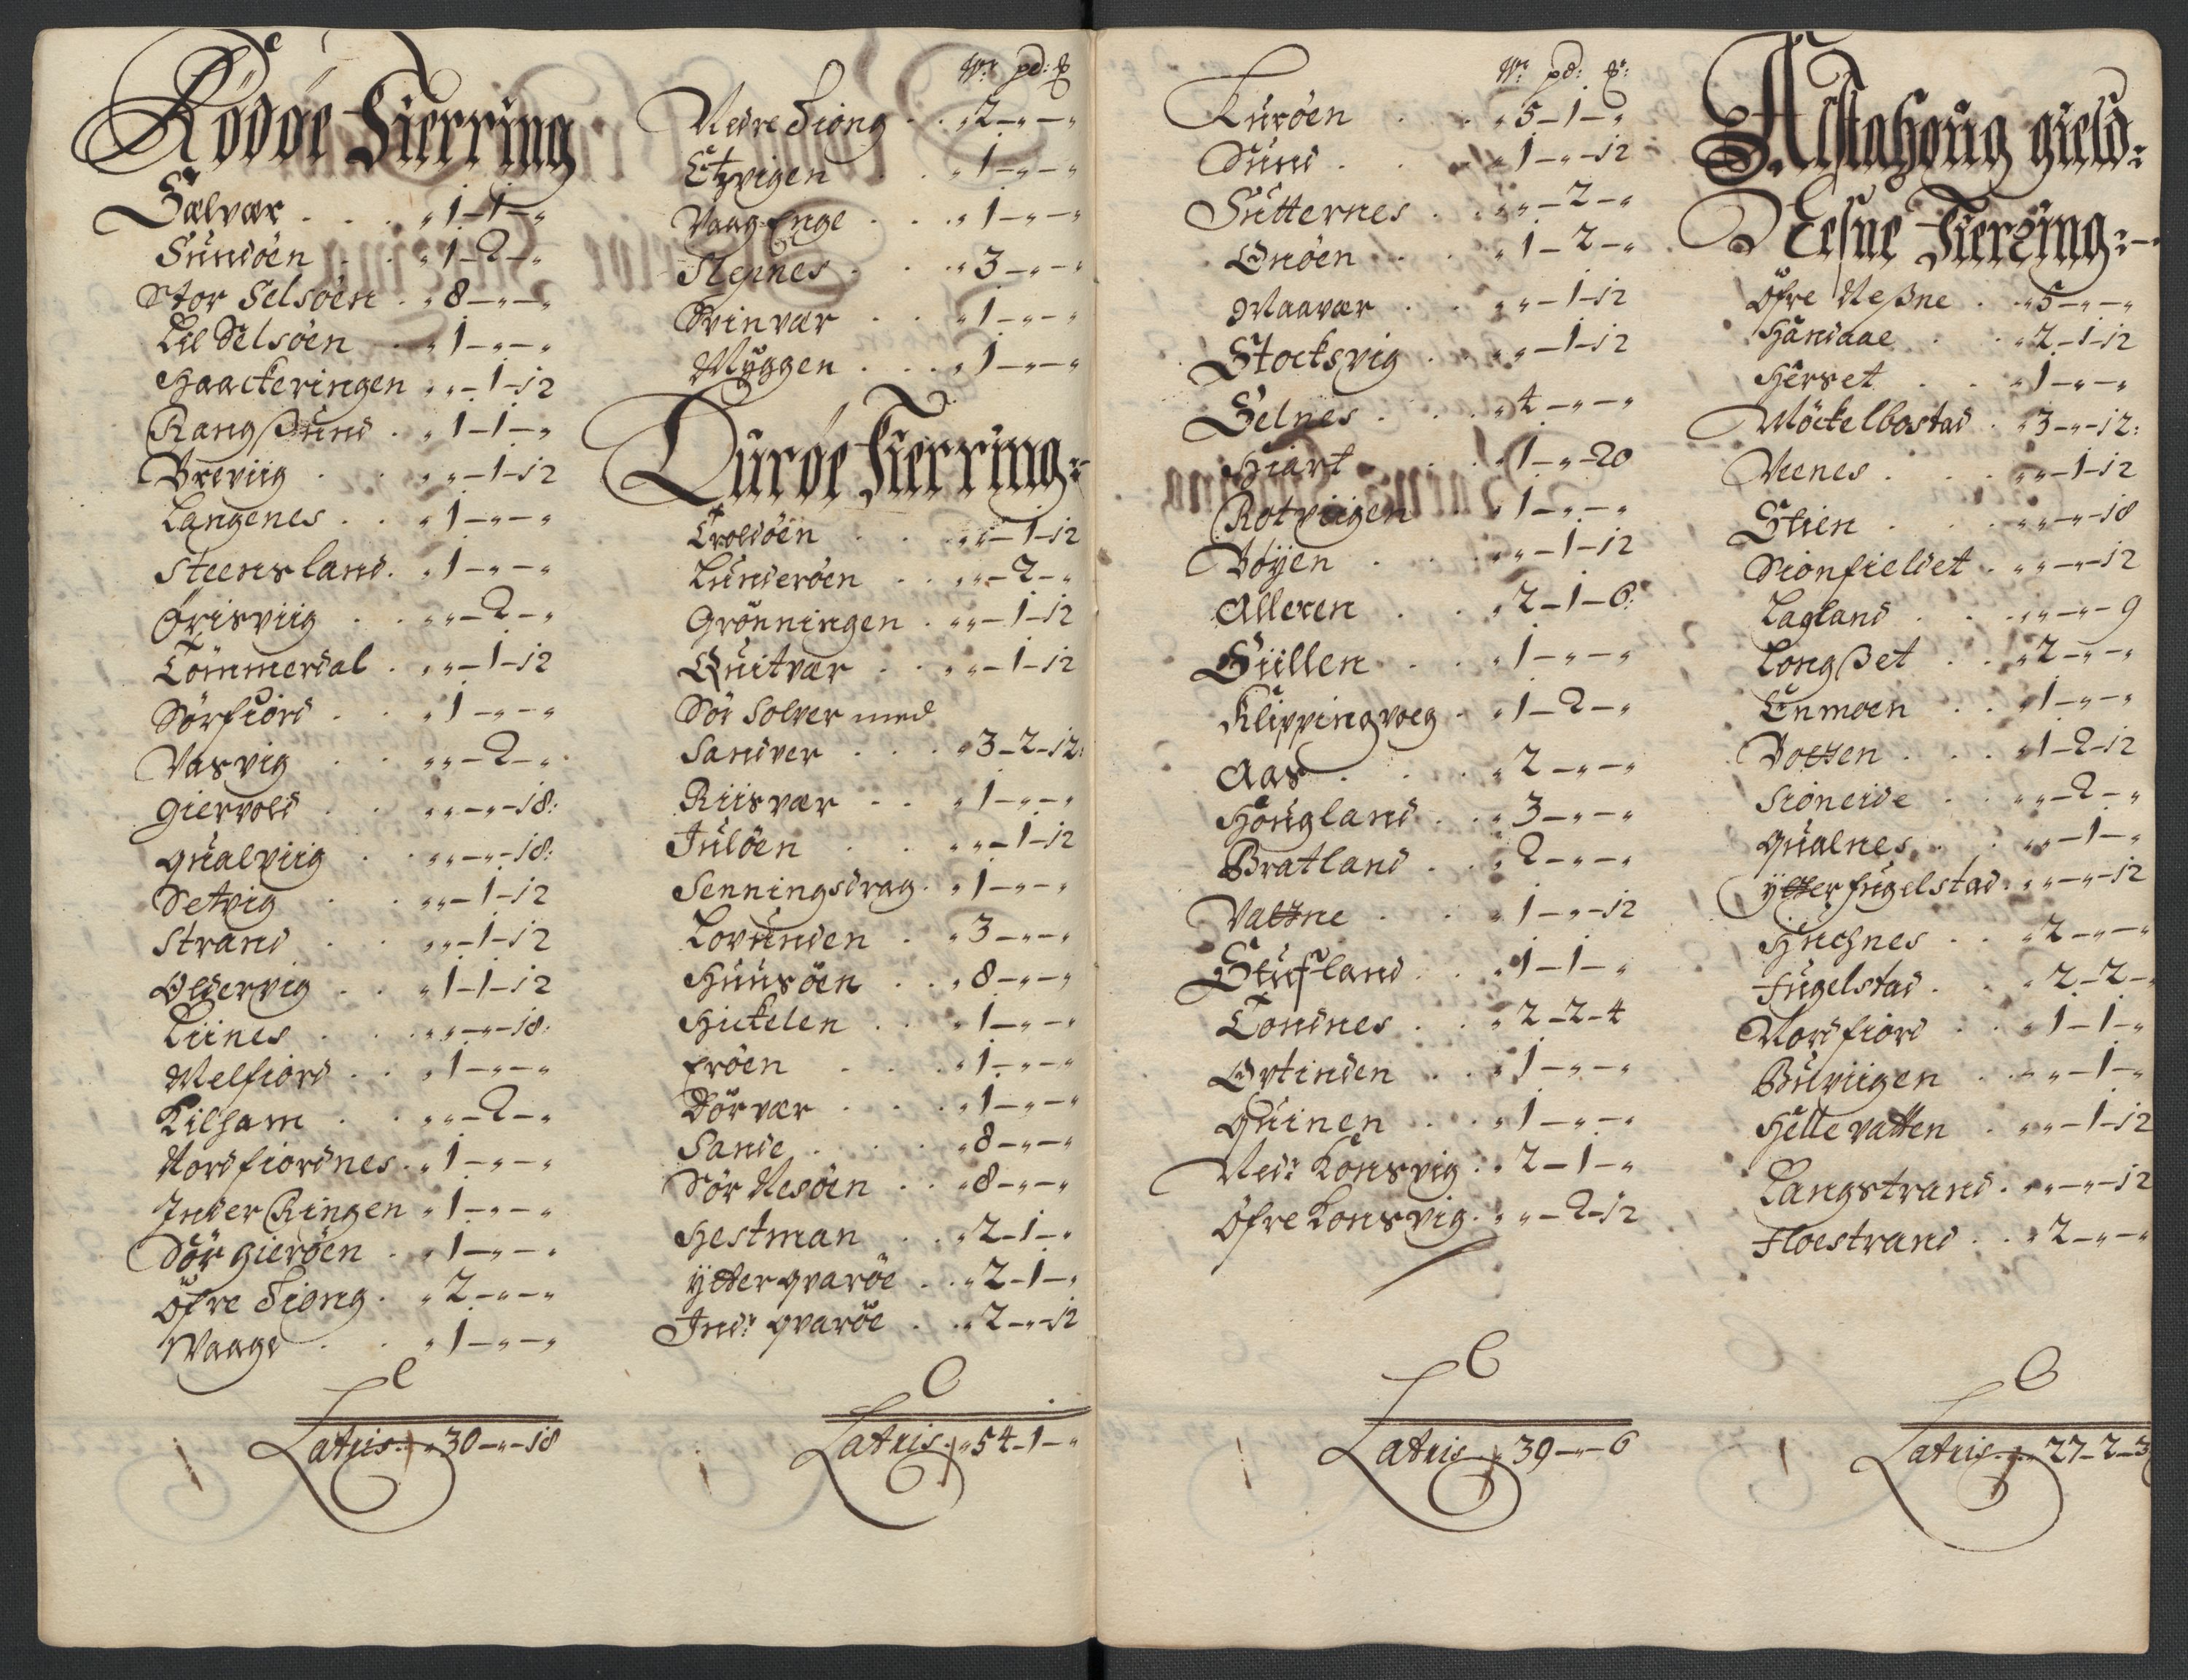 Rödöe Fierring
Selvær . . . „ 1 – 1 – „
Sundöen . . „ 1 – 2 – „
Stor Selsöen . „ 8 – „ – „
Lil Selsöen . „ 1 – „ – „
Haackeringen „ „ – 1 – 12
Rangßund . „ 1 – 1 – „
Breviig . . „ „ – 1 – 12
Langenes . . „ 1 – „ – „
Steensland . „ 1 – „ – „
Grisviig . . „ „ – 2 – „
Tömmerdal . „ „ – 1 – 12
Sörfiord . . „ 1 – „ – „
Vasvig . . „ „ – 2 – „
Giervold . . „ „ – „ – 18:
Qualviig . . „ „ – „ – 18:
Setvig . . „ „ – 1 – 12
Strand . . „ „ – 1 – 12
Oldervig . . „ 1 – 1 – 12
Liines . . „ „ – „ – 18:
Melfiord . . „ 1 – „ – „
Kilham . . „ „ – 2 – „
Nordfiordnes . „ 1 – „ – „
Inder Ringen „ 1 – „ – „
Sör Gieröen . „ 1 – „ – „
Öfre Siong . „ 2 – „ – „
Waage . . „ 1 – „ – „
Latris . „ 30 – „ – 18
W: pd: ℔
Nedre Siong . . „ 2 – „ – „
Etzvigen . . „ 1 – „ – „
Vaag Enge . . „ 1 – „ – „
Stennes . . „ 3 – „ – „
Svinvær . . „ 1 – „ – „
Myggen . . . „ 1 – „ – „
Luröe Fierring:
Troldöen . . „ „ – 1 – 12
Lunderöen . . „ „ – 2 – „
Grönningen . „ „ – 1 – 12
Quitvær . . „ „ – 1 – 12
Sör Solver med
Sandver . . . „ 3 – 2 – 12:
Riisvær . . „ 1 – „ – „
Julöen . . „ „ – 1 – 12
Senningsdrag . „ 1 – „ – „
Lovunden . „ 3 – „ – „
Huusöen . . „ 8 – „ – „
Hickelen . . „ 1 – „ – „
Eröen . . „ 1 – „ – „
Dörvær . . . „ 1 – „ – „
Sande . . . „ 8 – „ – „
Sör Nesöen . . „ 8 – „ – „
Hestman . . „ 2 – 1 – „
Ytter qvaröe . . „ 2 – 1 – „
Ind: qvaröe . . „ 2 – „ – 12
Latris . „ 54 – 1 – „
W: pd: ℔:
Luröen . . „ 5 – 1 – „
Sund . . „ 1 – „ – 12
Sutternes . „ „ – 2 – „
Onöen . . „ 1 – 2 – „
Maavær . . „ „ – 1 – 12
Stocksvig . „ „ – 1 – 12
Selnes . . . „ 4 – „ – „
Hiart . . „ 1 – „ – 20
Rotviigen . „ 1 – „ – „
Böyen . . „ „ – 1 – 12
Alleren . . „ 2 – 1 – 6:
Siillen . . „ 1 – „ – „
Klippingvoeg . „ 1 – 2 – „
Aas . . . „ 2 – „ – „
Hougland . . „ 3 – „ – „
Bratland . . „ 2 – „ – „
Vattne . . „ 1 – „ – 12
Stufland . . „ 1 – 1 – „
Tondnes . . „ 2 – 2 – 4
Ortinden . . „ 1 – „ – „
Quinen . . „ 1 – „ – „
Ned: Konsvig . „ 2 – 1 – „
Öfre Konsvig . „ „ – 2 – 12
Latris . „ 39 – „ – 6
Alstahoug gield:
Nesne Fierring:
Öfre Neßne . . „ 5 – „ – „
Handaae . . „ 2 – 1 – 12
Herset . . „ 1 – „ – „
Möckelbostad . „ 3 – „ – 12:
Veenes . . „ „ – 1 – 12
Stien . . „ „ – „ – 18
Sionfieldet . „ „ – „ – 12
Lagland . . „ „ – „ – 9
Longßet . . „ 2 – „ – „
Enmoen . . „ 1 – „ – „
Botten . . . „ 1 – 2 – 12
Sioneide . . „ „ – 2 – „
Qualnes . . „ „ – 1 – „
Ytter Fugelstad . „ „ – „ – 12
Huchnes . . „ 2 – „ – „
Fugelstad . . „ 2 – 2 – „
Nordfiord . . „ 1 – 1 – „
Bulviigen . . „ „ – 1 – „
Hellevatten . „ „ – 1 – 12
Langstrand . „ „ – „ – 12
Floestrand . . „ 2 – „ – „
Latris . . „ 27 – 2 – 3